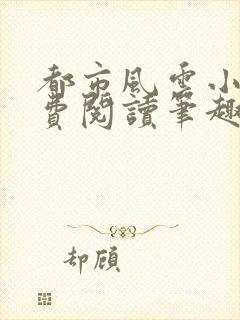 都市風雲小
費閱讀筆趣
却顧